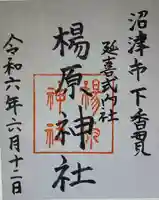 沼津市下香貫
延喜式内社
楊原神社
令和六年六月十二日